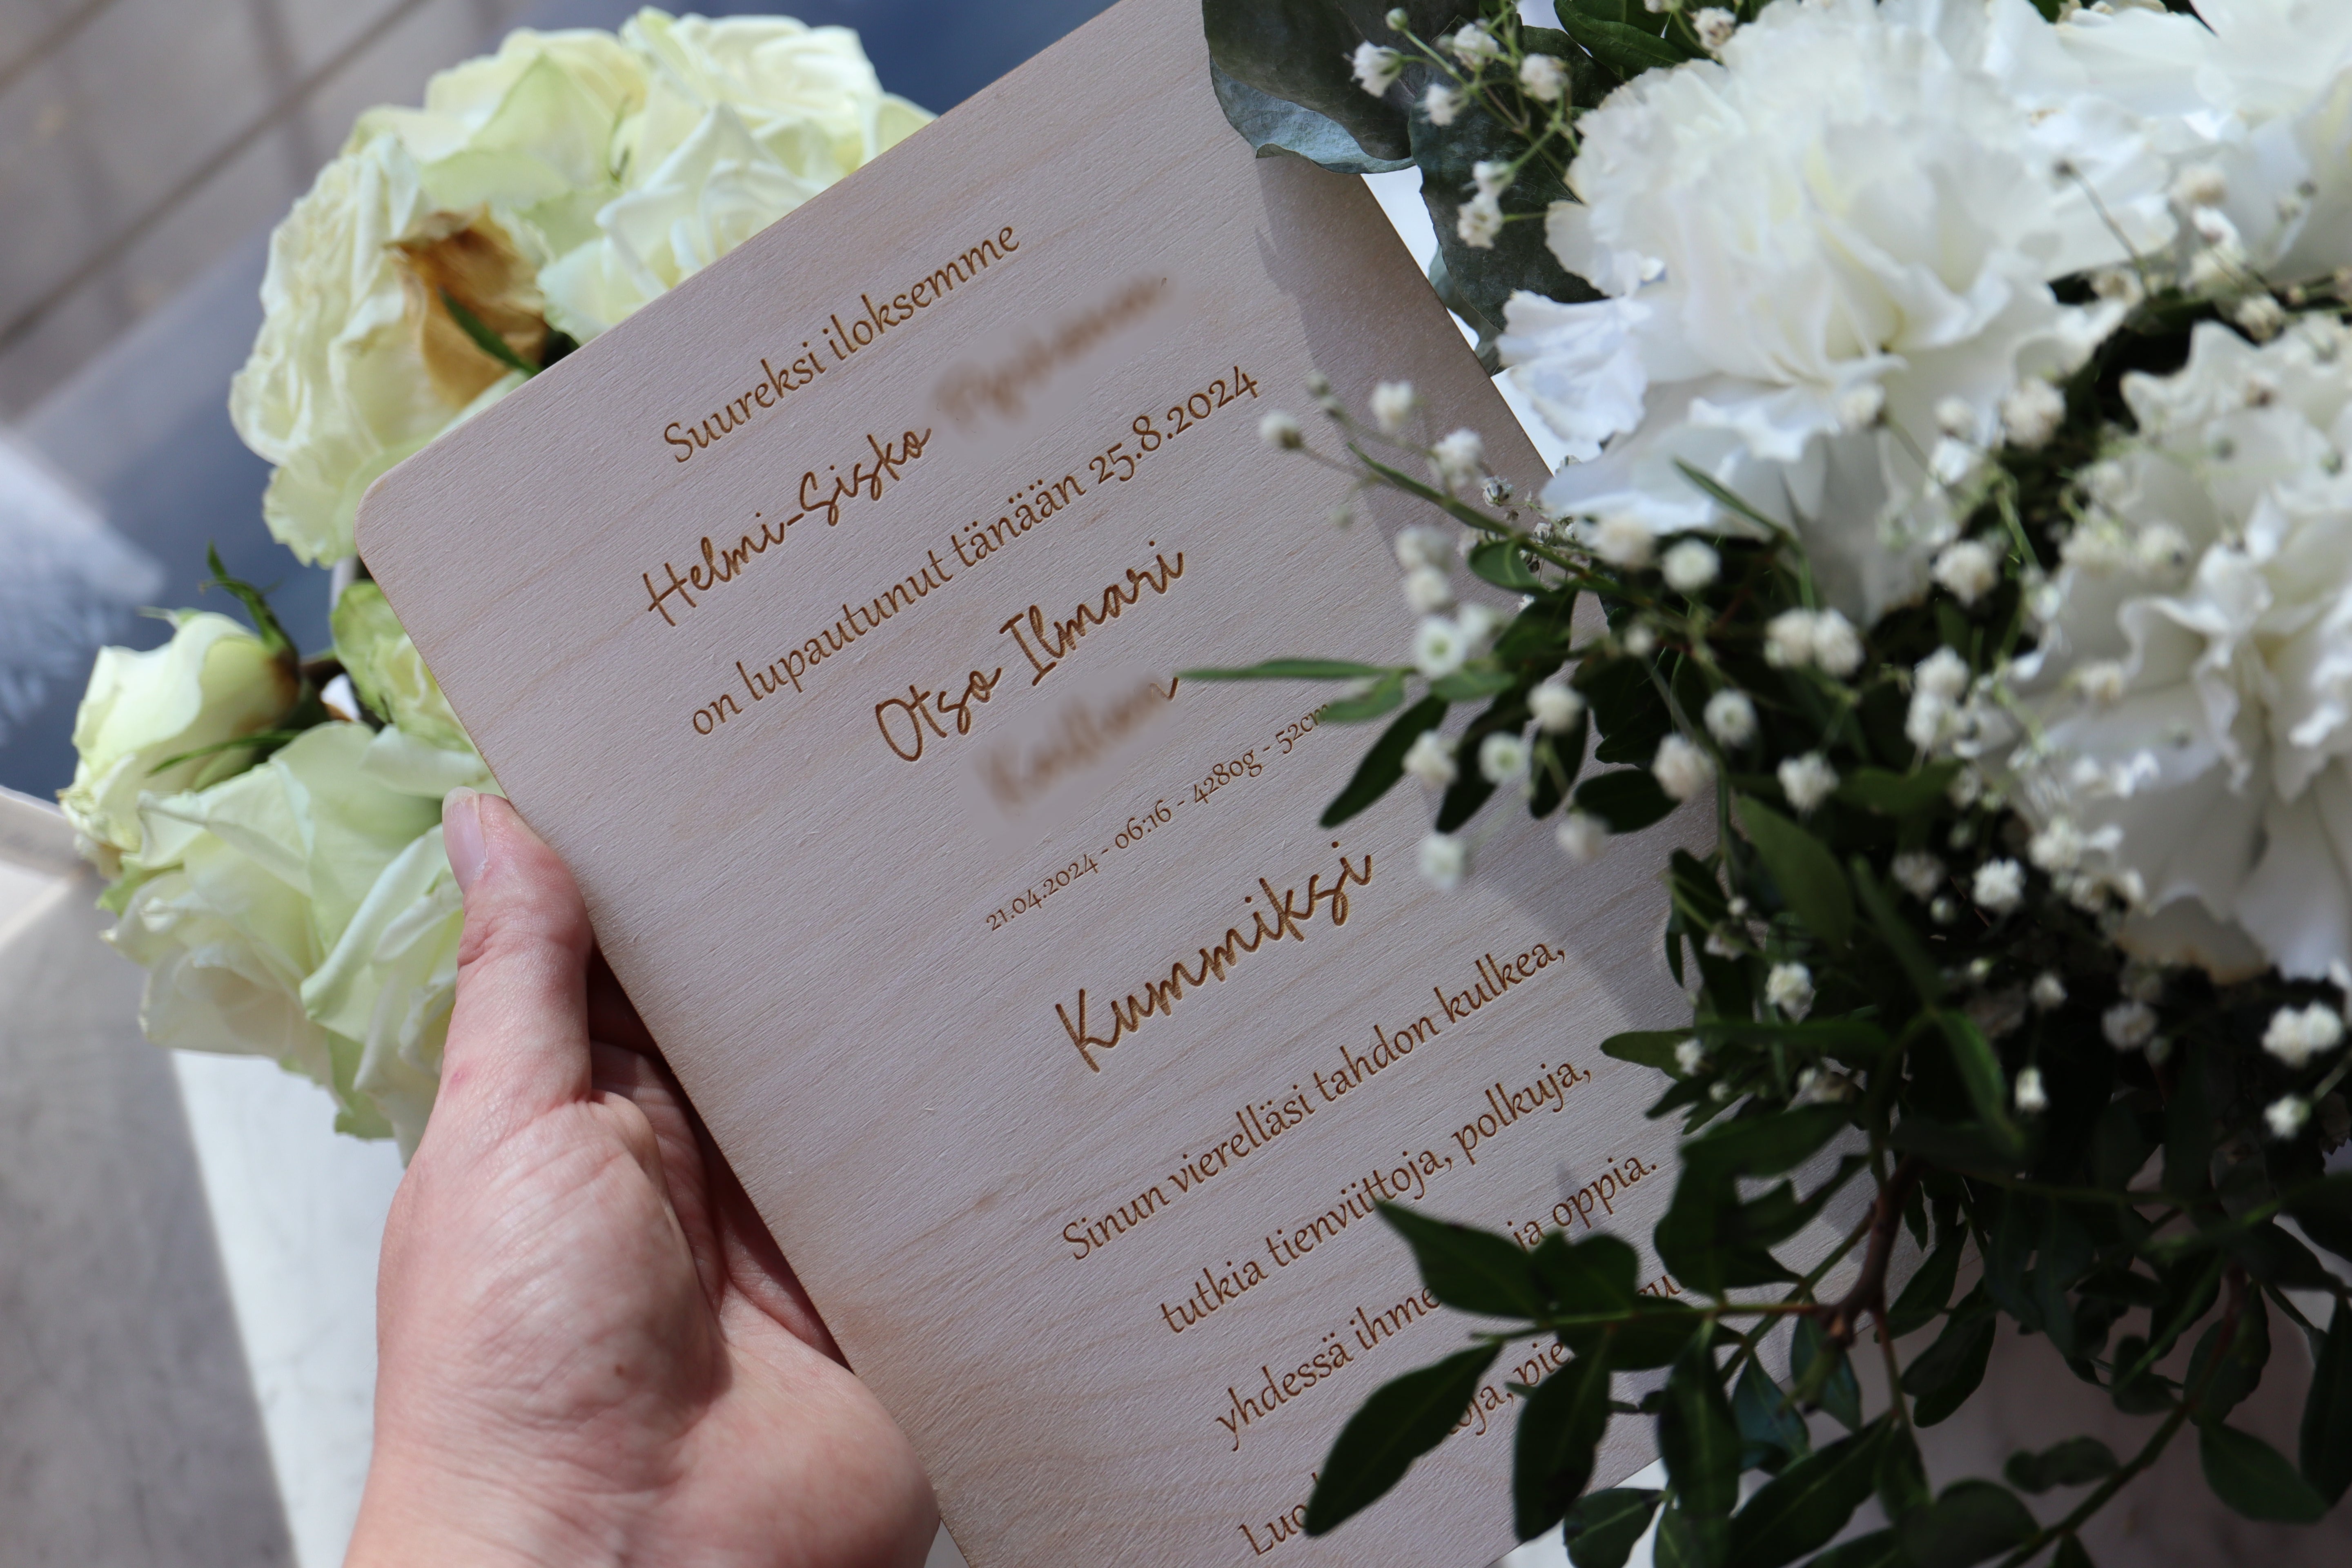 Suureksi iloksemme
Helmi-Sisko
on lupautunut tänään 25.8.2024
Otso Ilmari
21.04.2024 - 06:16 - 4280g - 52cm
Kummiksi
Sinun vierelläsi tahdon kulkea,
tutkia tienviittoja, polkuja,
yhdessä ja oppia.